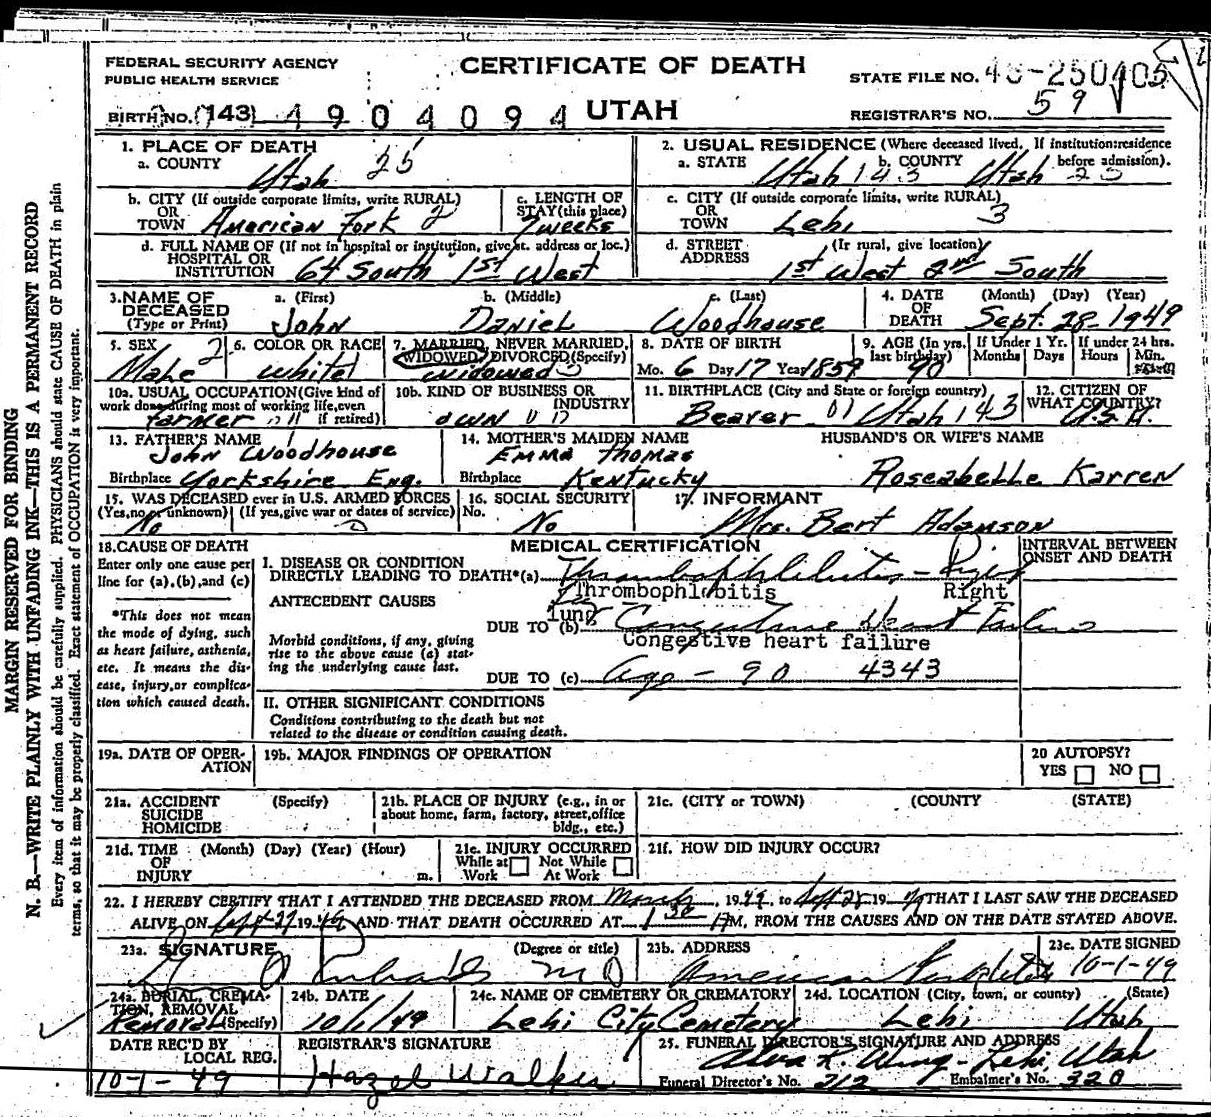 FEDERAL SECURITY AGENCY
PUBLIC HEALTH SERVICE
CERTIFICATE OF DEATH
STATE FILE NO. 49-250405
BIRTH NO. (143) 4904094
UTAH
REGISTRAR'S NO. 59
1. PLACE OF DEATH
a. COUNTY Utah 25
2. USUAL RESIDENCE (Where deceased lived. If institution:residence before admission).
a. STATE Utah 143 b. COUNTY Utah 25
b. CITY (If outside corporate limits, write RURAL) OR TOWN American Fork 2
c. LENGTH OF STAY (this place) 2 weeks
c. CITY (If outside corporate limits, write RURAL) OR TOWN Lehi 3
d. FULL NAME OF (If not in hospital or institution, give st. address or loc.) HOSPITAL OR INSTITUTION 64 South 1st West
d. STREET ADDRESS (If rural, give location) 1st West 2nd South
3. NAME OF DECEASED (Type or Print)
a. (First) John
b. (Middle) Daniel
c. (Last) Woodhouse
4. DATE OF DEATH (Month) (Day) (Year) Sept. 28-1949
5. SEX Male 2
6. COLOR OR RACE White
7. MARRIED, NEVER MARRIED, WIDOWED, DIVORCED (Specify) Widowed 3
8. DATE OF BIRTH Mo. 6 Day 17 Year 1859
9. AGE (In yrs. last birthday) 90
If Under 1 Yr. Months Days
If under 24 hrs. Hours Min.
10a. USUAL OCCUPATION (Give kind of work done during most of working life, even if retired) Farmer
10b. KIND OF BUSINESS OR INDUSTRY own
11. BIRTHPLACE (City and State or foreign country) Beaver 01 Utah 143
12. CITIZEN OF WHAT COUNTRY? U.S.A.
13. FATHER'S NAME John Woodhouse
Birthplace Yorkshire Eng.
14. MOTHER'S MAIDEN NAME Emma Thomas
Birthplace Kentucky
HUSBAND'S OR WIFE'S NAME
Roseabelle Karren
15. WAS DECEASED ever in U.S. ARMED FORCES
(Yes, no or unknown) (If yes, give war or dates of service) No
16. SOCIAL SECURITY No. No
17. INFORMANT
Mrs. Bert Adamson
18. CAUSE OF DEATH
Enter only one cause per line for (a). (b), and (c)
*This does not mean the mode of dying, such as heart failure, asthenia, etc. It means the disease, injury, or complication which caused death.
MEDICAL CERTIFICATION
INTERVAL BETWEEN ONSET AND DEATH
I. DISEASE OR CONDITION DIRECTLY LEADING TO DEATH* (a) Thrombophlebitis - Right
Thrombophlebitis Right
ANTECEDENT CAUSES
Lung
Morbid conditions, if any, giving rise to the above cause (a) stating the underlying cause last.
DUE TO (b) Congestive Heart Failure
Congestive heart failure
DUE TO (c) age - 90 4343
II. OTHER SIGNIFICANT CONDITIONS
Conditions contributing to the death but not related to the disease or condition causing death.
19a. DATE OF OPERATION
19b. MAJOR FINDINGS OF OPERATION
20 AUTOPSY?
YES NO
21a. ACCIDENT SUICIDE HOMICIDE (Specify)
21b. PLACE OF INJURY (e.g., in or about home, farm, factory, street, office bldg., etc.)
21c. (CITY or TOWN) (COUNTY) (STATE)
21d. TIME OF INJURY (Month) (Day) (Year) (Hour) m.
21e. INJURY OCCURRED While at Work Not While At Work
21f. HOW DID INJURY OCCUR?
22. I HEREBY CERTIFY THAT I ATTENDED THE DECEASED FROM March, 1949, to Sept 28 1949 THAT I LAST SAW THE DECEASED
ALIVE ON Sept 27 1949 AND THAT DEATH OCCURRED AT 1 30 M, FROM THE CAUSES AND ON THE DATE STATED ABOVE.
23a. SIGNATURE (Degree or title) M D
23b. ADDRESS American Fork Utah
23c. DATE SIGNED 10-1-49
24a. BURIAL, CREMATION, REMOVAL (Specify) Removal
24b. DATE 10/1/49
24c. NAME OF CEMETERY OR CREMATORY Lehi City Cemetery
24d. LOCATION (City, town, or county) (State) Lehi Utah
DATE REC'D BY LOCAL REG. 10-1-49
REGISTRAR'S SIGNATURE Hazel Walker
25. FUNERAL DIRECTOR'S SIGNATURE AND ADDRESS
Alva R. Wing - Lehi, Utah
Funeral Director's No. 212 Embalmer's No. 320
MARGIN RESERVED FOR BINDING
N. B.—WRITE PLAINLY WITH UNFADING INK—THIS IS A PERMANENT RECORD
Every item of information should be carefully supplied. PHYSICIANS should state CAUSE OF DEATH in plain
terms, so that it may be properly classified. Exact statement of OCCUPATION is very important.